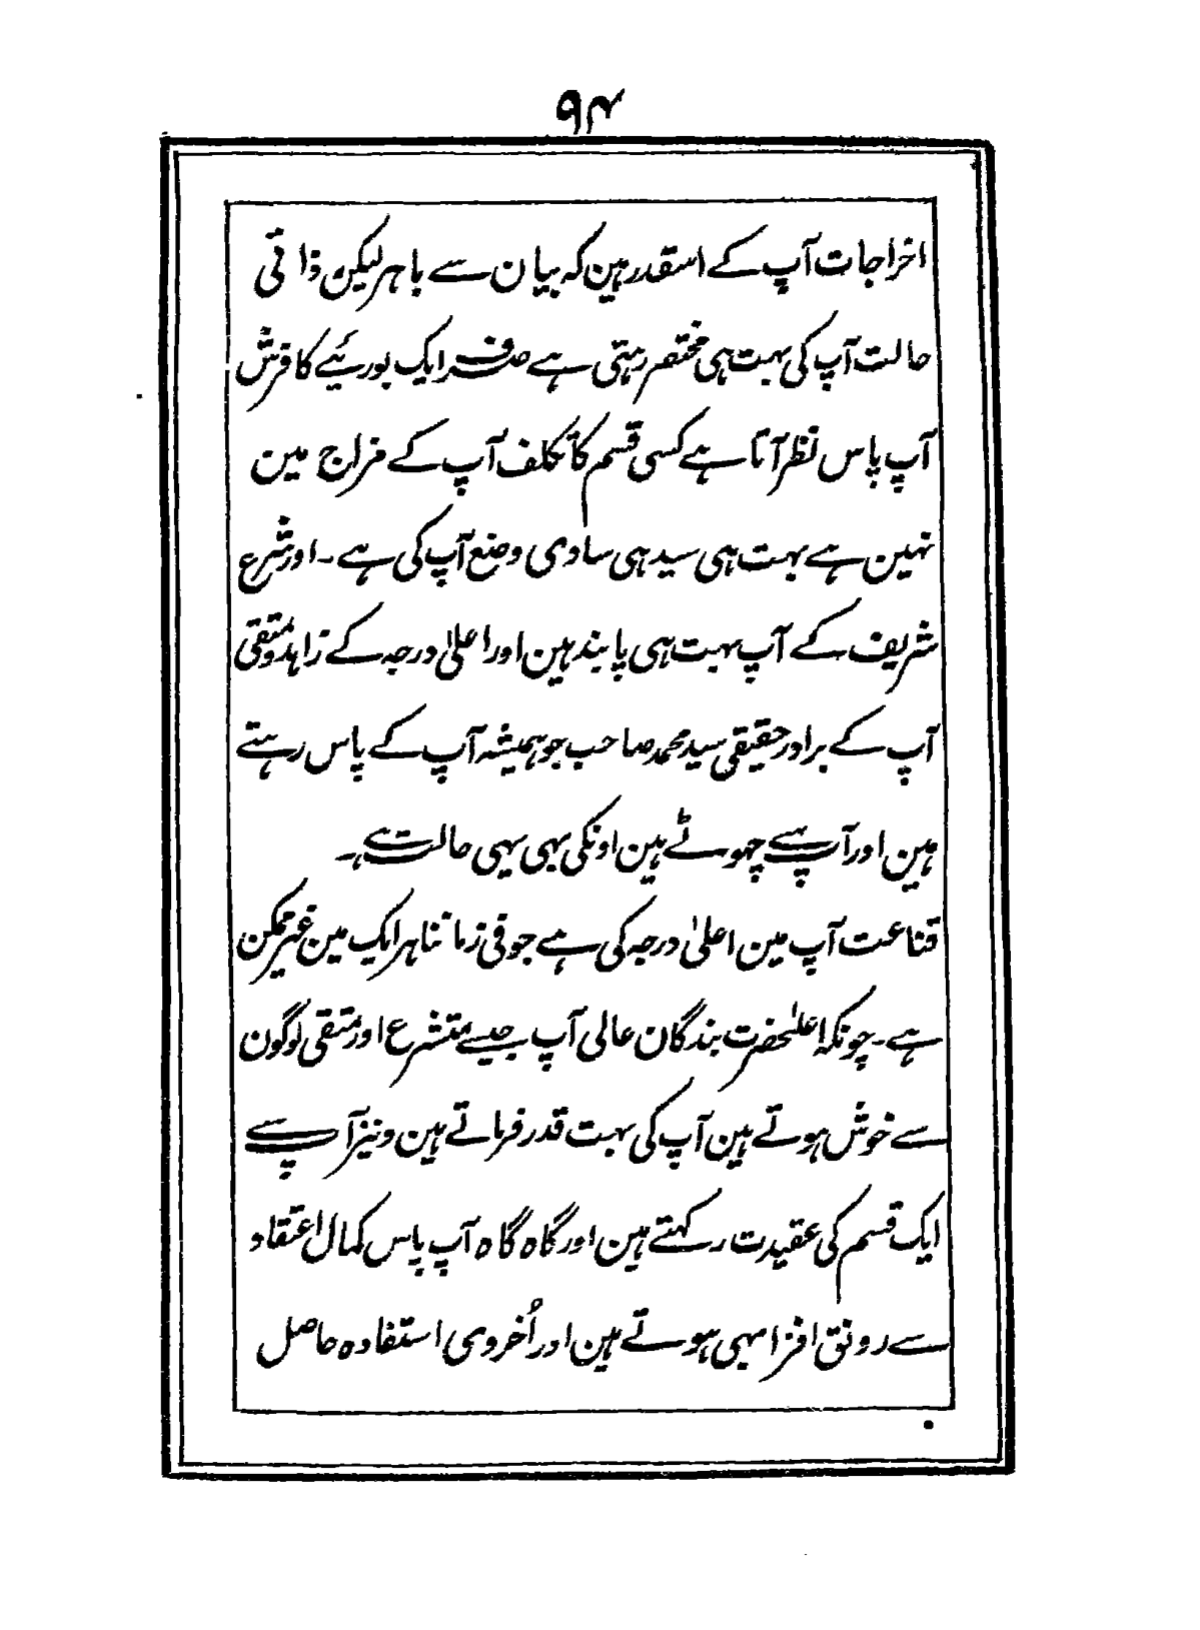 ۹۴
اخراجات آپ کے اسقدر ہین کہ بیان سے باہر لیکن ذاتی
حالت آپ کی بہت ہی مختصر رہتی ہے صرف ایک بوریئے کا فرش
آپ پاس نظر آتا ہے کسی قسم کا تکلف آپ کے مزاج مین
نہین ہے بہت ہی سیدہی سادی وضع آپ کی ہے ۔ اور شرع
شریف کے آپ بہت ہی پابند ہین اور اعلیٰ درجہ کے زاہد و متقی
آپ کے برادر حقیقی سید محمد صاحب جو ہمیشہ آپ کے پاس رہتے
ہین اور آپ سے چہوٹے ہین اونکی بہی یہی حالت ہے ۔
قناعت آپ مین اعلیٰ درجہ کی ہے جو فی زماننا ہر ایک مین غیر ممکن
ہے ۔ چونکہ اعلحضرت بندگان عالی آپ جیسے متشرع اور متقی لوگون
سے خوش ہوتے ہین آپ کی بہت قدر فرماتے ہین و نیز آپ سے
ایک قسم کی عقیدت رکہتے ہین اور گاہ گاہ آپ پاس کمال اعتقاد
سے رونق افزا بہی ہوتے ہین اور اُخروی استفادہ حاصل